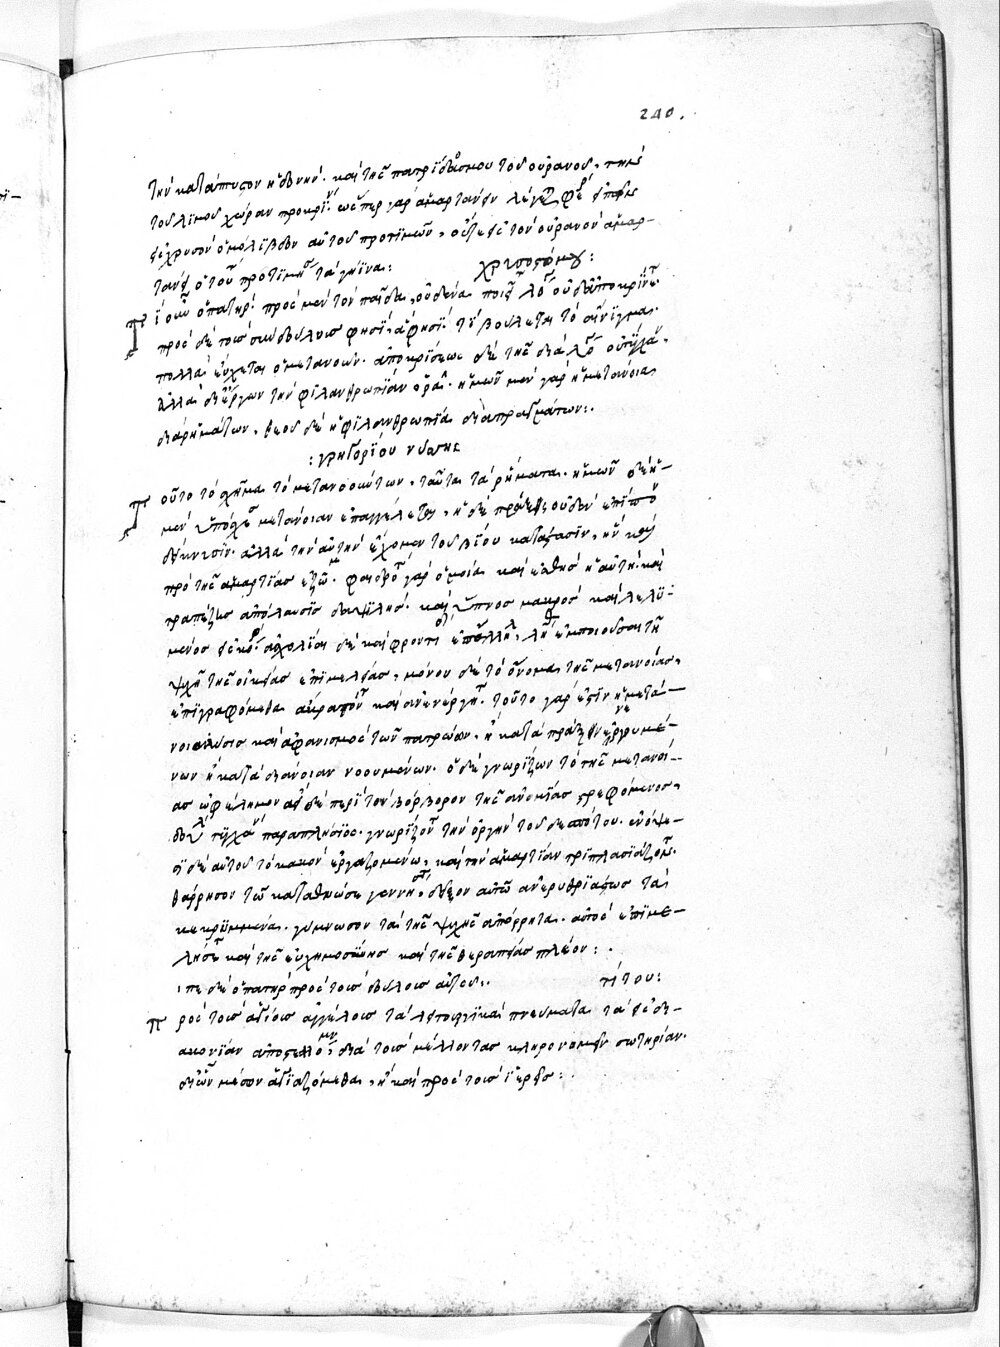 240.
τὴν κατάπτυστον ἡδονήν. καὶ τῆς πατρίδος μου τοῦ οὐρανοῦ, τὴν
τοῦ λιμοῦ χώραν προκρίν ὥσπερ γὰρ ἁμαρτάνειν λέγεται
χρυσὸν ὁ μόλιβδον αὐτοῦ προτιμῶν, οὕτως εἰς τὸν οὐρανὸν ἁμαρ-
τάνει ὁ τούτου προτιμήσας τὰ γήϊνα: χρυσοστόμου:
Τί οὖν ὁ πατήρ; πρὸς μὲν τὸν παῖδα, οὐδένα ποιεῖται λόγον οὐδὲ ἀποκρίνεται
πρὸς δὲ τοὺς δούλους φησί, τί βούλεται τὸ αἴνιγμα.
πολλὰ εὔχεται ὁ μετανοῶν. ἀποκρίσεως δὲ τῆς διὰ λόγου οὐ
ἀλλὰ δι' ἔργων τὴν φιλανθρωπίαν ὁρᾷ. ἡμῶν μὲν γὰρ ἡ μετάνοια
διὰ ῥημάτων, θεοῦ δὲ ἡ φιλανθρωπία διὰ πραγμάτων:.
:γρηγορίου νύσης
Τοῦτο τὸ σχῆμα τὸ μετανοούντων, ταῦτα τὰ ῥήματα. ἡμῶν δὲ ἡ
μὲν ὑπόσχεσις μετάνοιαν ἐπαγγέλεται, ἡ δὲ πρᾶξις οὐδὲν ἐπίπονον
δείκνυσιν. ἀλλὰ τὴν αὐτὴν ἔχομεν τοῦ βίου κατάστασιν, ἣν καὶ
πρὸ τῆς ἁμαρτίας εἴχομεν. φαιδρότης γὰρ ὁμοία καὶ ἐσθὴς ἡ αὐτὴ. καὶ
τραπέζης ἀπόλαυσις δαψιλής. καὶ ὕπνος μακρὸς καὶ λελυ-
μένος εἰς κόρον. ἀσχολίαι δὲ καὶ φροντίδες πολλαὶ, λήθην ἐμποιοῦσαι τῇ
ψυχῇ τῆς οἰκείας ἐπιμελείας, μόνον δὲ τὸ ὄνομα τῆς μετανοίας,
ἐπιγραφόμεθα ἄκαρπον καὶ ἀνενέργητον. τοῦτο γάρ ἐστιν ἡ μετά-
νοια λύσις καὶ ἀφανισμὸς τῶν πατρώων, ἢ κατὰ πρᾶξιν ἐνεργουμέ-
νων ἢ κατὰ διάνοιαν νοουμένων. ὁ δὲ γνωρίζων τὸ τῆς μετανοί-
ας ὠφέλημον ἀεὶ δὲ περὶ τὸν βόρβορον τῆς ἀνομίας στρεφόμενος,
δούλῳ τυγχάνει παραπλήσιος. γνωρίζοντι τὴν ὀργὴν τοῦ δεσπότου. ἐν ὄψε-
σι δὲ αὐτοῦ τὸ κακὸν ἐργαζομένῳ, καὶ τὴν ἁμαρτίαν τριπλασιάζοντι.
θάρρησον τῷ καταθνώσε γεννή, δεῖξον αὐτῷ ἀνερυθριάστως τὰ
κεκρυμμένα. γύμνωσον τὰ τῆς ψυχῆς ἀπόρρητα. αὐτὸς ἐπιμε-
λήσεται καὶ τῆς εὐσχημοσύνης καὶ τῆς θεραπείας πλέον: .
ιπε δὲ ὁ πατὴρ πρὸς τοὺς δούλους αὐτοῦ:. τίτου:
Πρὸς τοὺς ἁγίους ἀγγέλους τὰ λειτουργικὰ πνεύματα τὰ εἰς δι-
ακονίαν ἀποστελλόμενα, διὰ τοὺς μέλλοντας κληρονομεῖν σωτηρίαν.
δι' ὧν μέσον ἁγιαζόμεθα, ἢ καὶ πρὸς τοὺς ἱερεῖς: